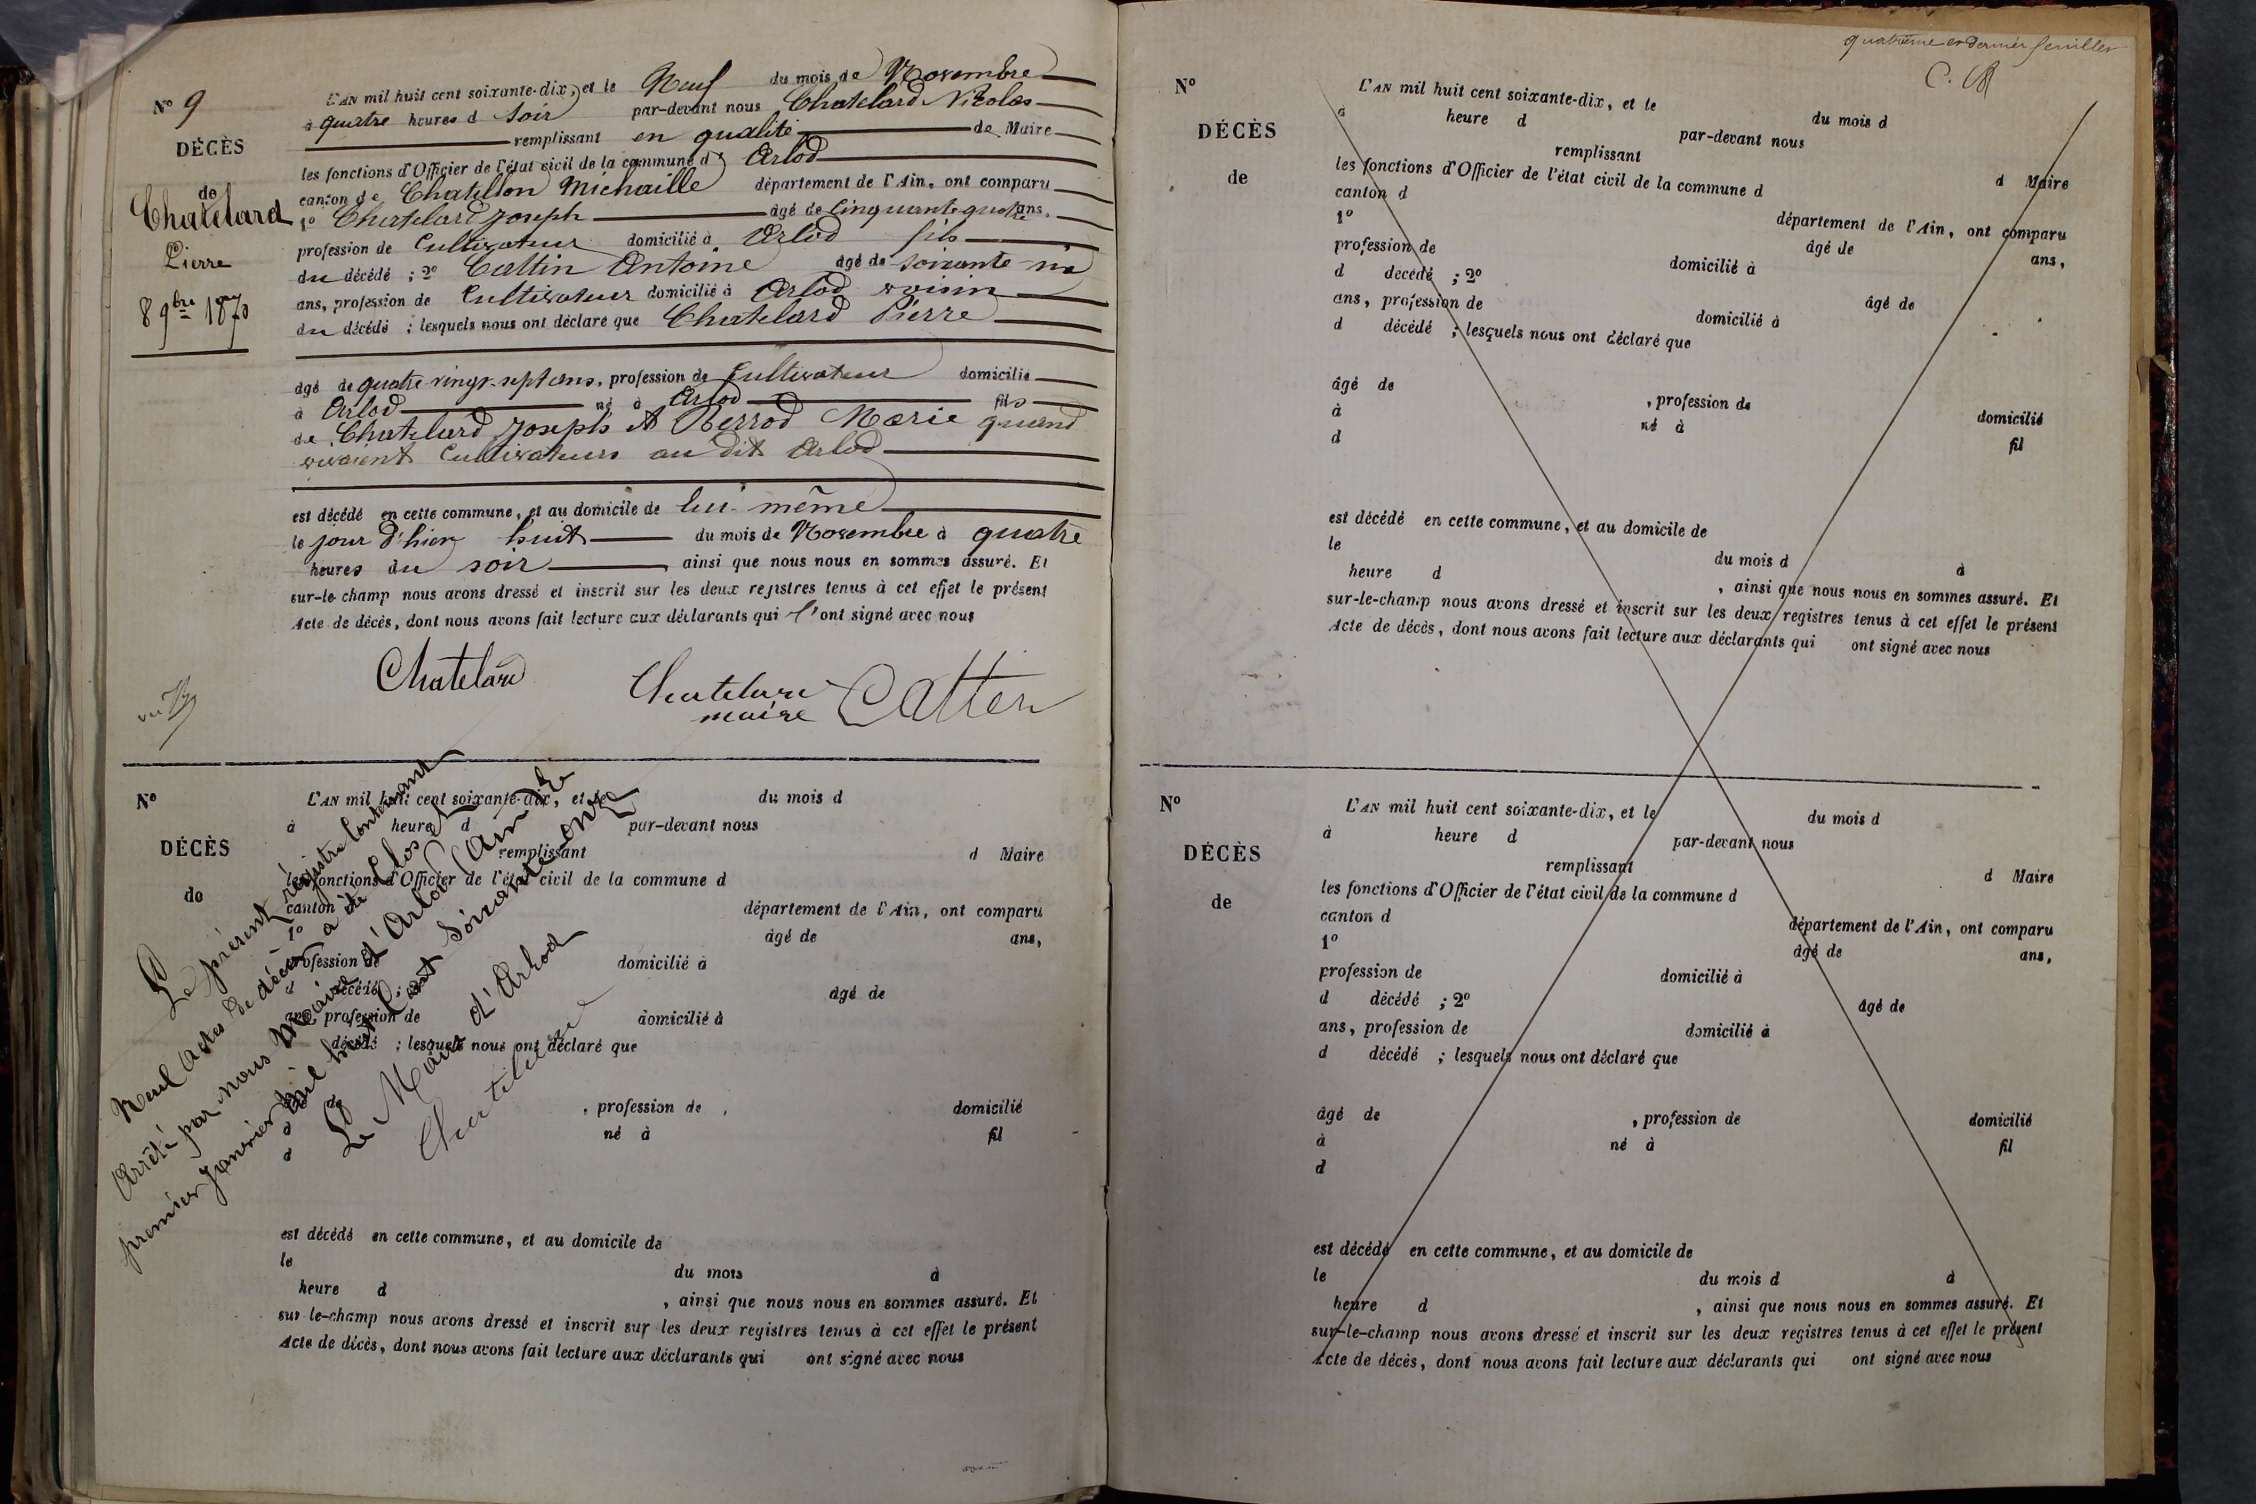 N° 9
DÉCÈS
de
Chatelard
Pierre
8 9bre 1870
L'AN mil huit cent soixante-dix, et le Neuf du mois de Novembre
à quatre heures d soir par-devant nous Chatelard Nicolas
remplissant en qualité de Maire
les fonctions d'Officier de l'état civil de la commune d' Arlod
canton de Chatillon Michaille département de l'Ain, ont comparu
1° Chatelard Joseph âgé de Cinquante quatre ans,
profession de Cultivateur domicilié à Arlod fils
du décédé ; 2° Cattin Antoine âgé de soixante
ans, profession de Cultivateur domicilié à Arlod voisin
du décédé ; lesquels nous ont déclaré que Chatelard Pierre
âgé de quatre vingt sept ans, profession de Cultivateur domicilié
à Arlod né à Arlod fils
de Chatelard Joseph et Berrod Marie quand
vivaient Cultivateurs au dit Arlod
est décédé en cette commune, et au domicile de lui-même
le jour d'hier huit du mois de Novembre à quatre
heures du soir, ainsi que nous nous en sommes assuré. Et
sur-le champ nous avons dressé et inscrit sur les deux registres tenus à cet effet le présent
Acte de décès, dont nous avons fait lecture aux déclarants qui l'ont signé avec nous
Chatelard
Chatelard
maire
Catten
vu
N°
DÉCÈS
de
L'AN mil huit cent soixante-dix, et le du mois d
à heure d par-devant nous
remplissant d Maire
les fonctions d'Officier de l'état civil de la commune d
canton d département de l'Ain, ont comparu
1° âgé de ans,
profession de domicilié à
d décédé ; 2° âgé de
ans, profession de domicilié à
d décédé ; lesquels nous ont déclaré que
âgé de , profession de domicilié
à né à fil
d
est décédé en cette commune, et au domicile de
le du mois d à
heure d , ainsi que nous nous en sommes assuré. Et
sur le-champ nous avons dressé et inscrit sur les deux registres tenus à cet effet le présent
Acte de décès, dont nous avons fait lecture aux déclarants qui ont signé avec nous
Le présent registre Contenant
Neuf actes de décès a été Clos et
Arrêté par nous Maire d'Arlod (Ain) le
premier Janvier mil huit Cent soixante onze
Le Maire d'Arlod
Chatelard
quatrième et dernier feuillet
N°
DÉCÈS
de
L'AN mil huit cent soixante-dix, et le du mois d
à heure d par-devant nous
remplissant d Maire
les fonctions d'Officier de l'état civil de la commune d
canton d département de l'Ain, ont comparu
1° âgé de ans,
profession de domicilié à
d décédé ; 2° âgé de
ans, profession de domicilié à
d décédé ; lesquels nous ont déclaré que
âgé de , profession de domicilié
à né à fil
d
est décédé en cette commune, et au domicile de
le du mois d à
heure d , ainsi que nous nous en sommes assuré. Et
sur-le-champ nous avons dressé et inscrit sur les deux registres tenus à cet effet le présent
Acte de décès, dont nous avons fait lecture aux déclarants qui ont signé avec nous
N°
DÉCÈS
de
L'AN mil huit cent soixante-dix, et le du mois d
à heure d par-devant nous
remplissant d Maire
les fonctions d'Officier de l'état civil de la commune d
canton d département de l'Ain, ont comparu
1° âgé de ans,
profession de domicilié à
d décédé ; 2° âgé de
ans, profession de domicilié à
d décédé ; lesquels nous ont déclaré que
âgé de , profession de domicilié
à né à fil
d
est décédé en cette commune, et au domicile de
le du mois d à
heure d , ainsi que nous nous en sommes assuré. Et
sur-le-champ nous avons dressé et inscrit sur les deux registres tenus à cet effet le présent
Acte de décès, dont nous avons fait lecture aux déclarants qui ont signé avec nous